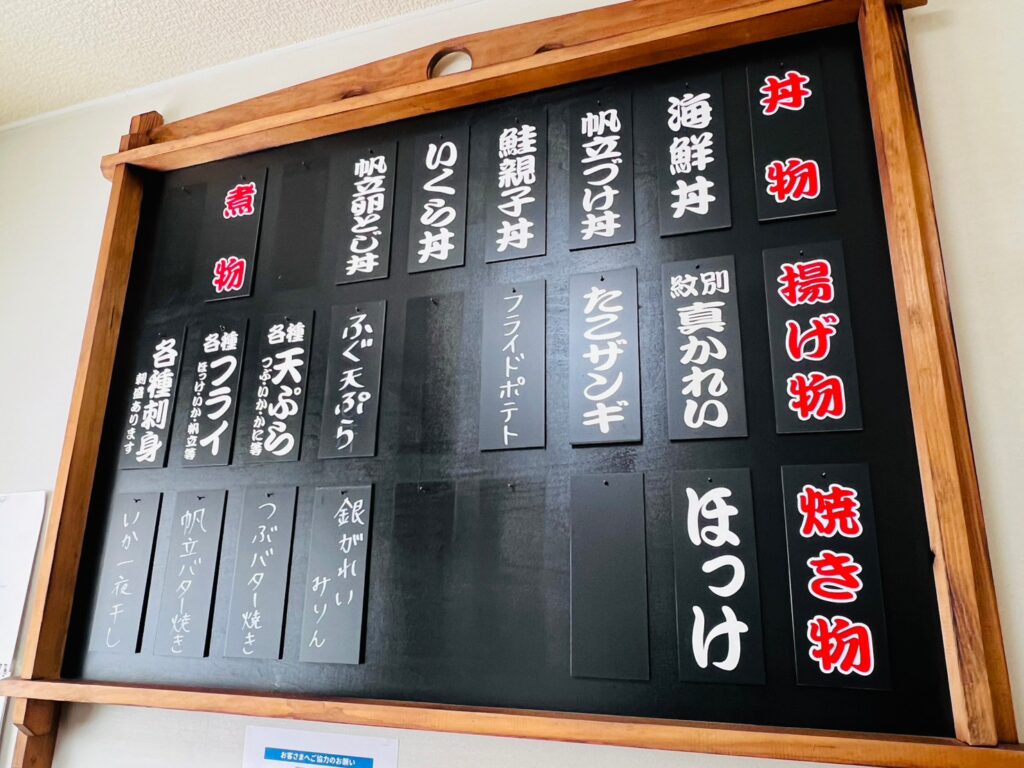 丼物
海鮮丼
帆立づけ丼
鮭親子丼
いくら丼
帆立卵とじ丼
煮物
揚げ物
紋別
真かれい
たこザンギ
フライドポテト
ふぐ天ぷら
各種
天ぷら
つぶ・いか・かに等
各種
フライ
ほっけ・いか・帆立等
各種刺身
刺盛あります
焼き物
ほっけ
銀がれい
みりん
つぶバター焼き
帆立バター焼き
いか一夜干し
お客さまへご協力のお願い